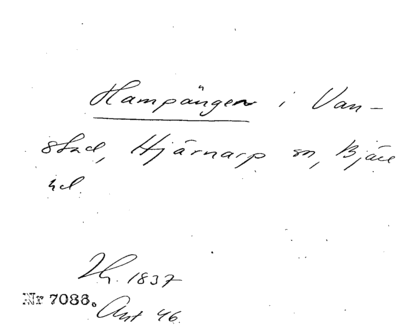 Hampängen i Van-
stad, Hjärnarp sn, Bjäre
hd.
Th. 1837
Nr 7086. Ant 46.